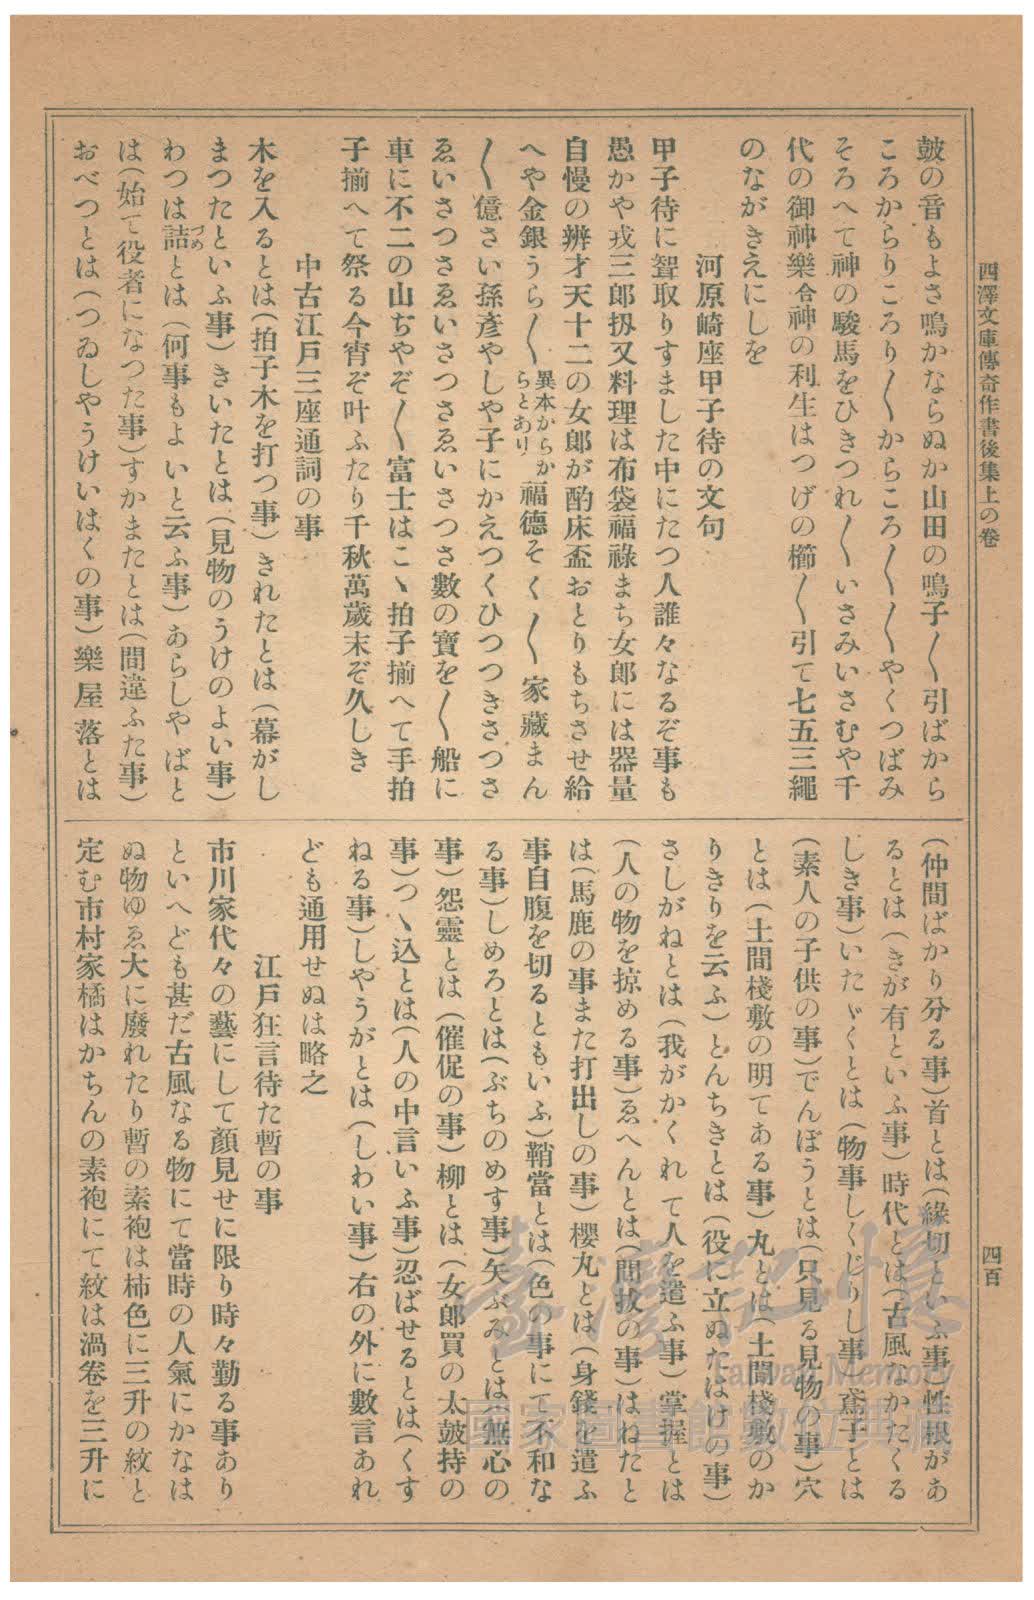 四澤文庫傳奇作書後集上の卷
四百
鼓の音もよさ鳴かならぬか山田の鳴子〳〵引ばから
ころからりころり〳〵からころ〳〵〳〵やくつばみ
そろへて神の駿馬をひきつれ〳〵いさみいさむや千
代の御神樂令神の利生はつげの櫛〳〵引て七五三繩
のながきえにしを
河原崎座甲子待の文句
甲子待に聟取りすました中にたつ人誰々なるぞ事も
愚かや戎三郎扨又料理は布袋福祿まち女郎には器量
自慢の辨才天十二の女郎が酌床盃おとりもちさせ給
へや金銀うら〳〵異本からからとあり福德そく〳〵家藏まん
〳〵億さい孫彥やしや子にかえつくひつつきさつさ
ゑいさつさゑいさつさゑいさつさ數の寳を〳〵船に
車に不二の山ぢやぞ〳〵富士はこゝ拍子揃へて手拍
子揃へて祭る今宵ぞ叶ふたり千秋萬歲末ぞ久しき
中古江戸三座通詞の事
木を入るとは(拍子木を打つ事)きれたとは(幕がし
まつたといふ事)きいたとは(見物のうけのよい事)
わつは詰づめとは(何事もよいと云ふ事)あらしやばと
は(始て役者になつた事)すかまたとは(間違ふた事)
おべつとは(つゐしやうけいはくの事)樂屋落とは
(仲間ばかり分る事)首とは(緣切といふ事)性根があ
るとは(きが有といふ事)時代とは(古風なかたくる
しき事)いたゞくとは(物事しくじりし事)鳶子とは
(素人の子供の事)でんぼうとは(只見る見物の事)穴
とは(土間棧敷の明てある事)丸とは(土間棧敷のか
りきりを云ふ)とんちきとは(役に立ぬたはけの事)
さしがねとは(我がかくれて人を遣ふ事)掌握とは
(人の物を掠める事)ゑへんとは(間拔の事)はねたと
は(馬鹿の事また打出しの事)櫻丸とは(身錢を遣ふ
事自腹を切るともいふ)鞘當とは(色の事にて不和な
る事)しめろとは(ぶちのめす事)矢ぶみとは(無心の
事)怨靈とは(催促の事)柳とは(女郎買の太鼓持の
事)つゝ込とは(人の中言いふ事)忍ばせるとは(くす
ねる事)しやうがとは(しわい事)右の外に數言あれ
ども通用せぬは略之
江戸狂言待た暫の事
市川家代々の藝にして顏見せに限り時々勤る事あり
といへども甚だ古風なる物にて當時の人氣にかなは
ぬ物ゆゑ大に廢れたり暫の素袍は柿色に三升の紋と
定む市村家橘はかちんの素袍にて紋は渦卷を三升に
臺灣記憶
Taiwan Memory
國家圖書館數位典藏